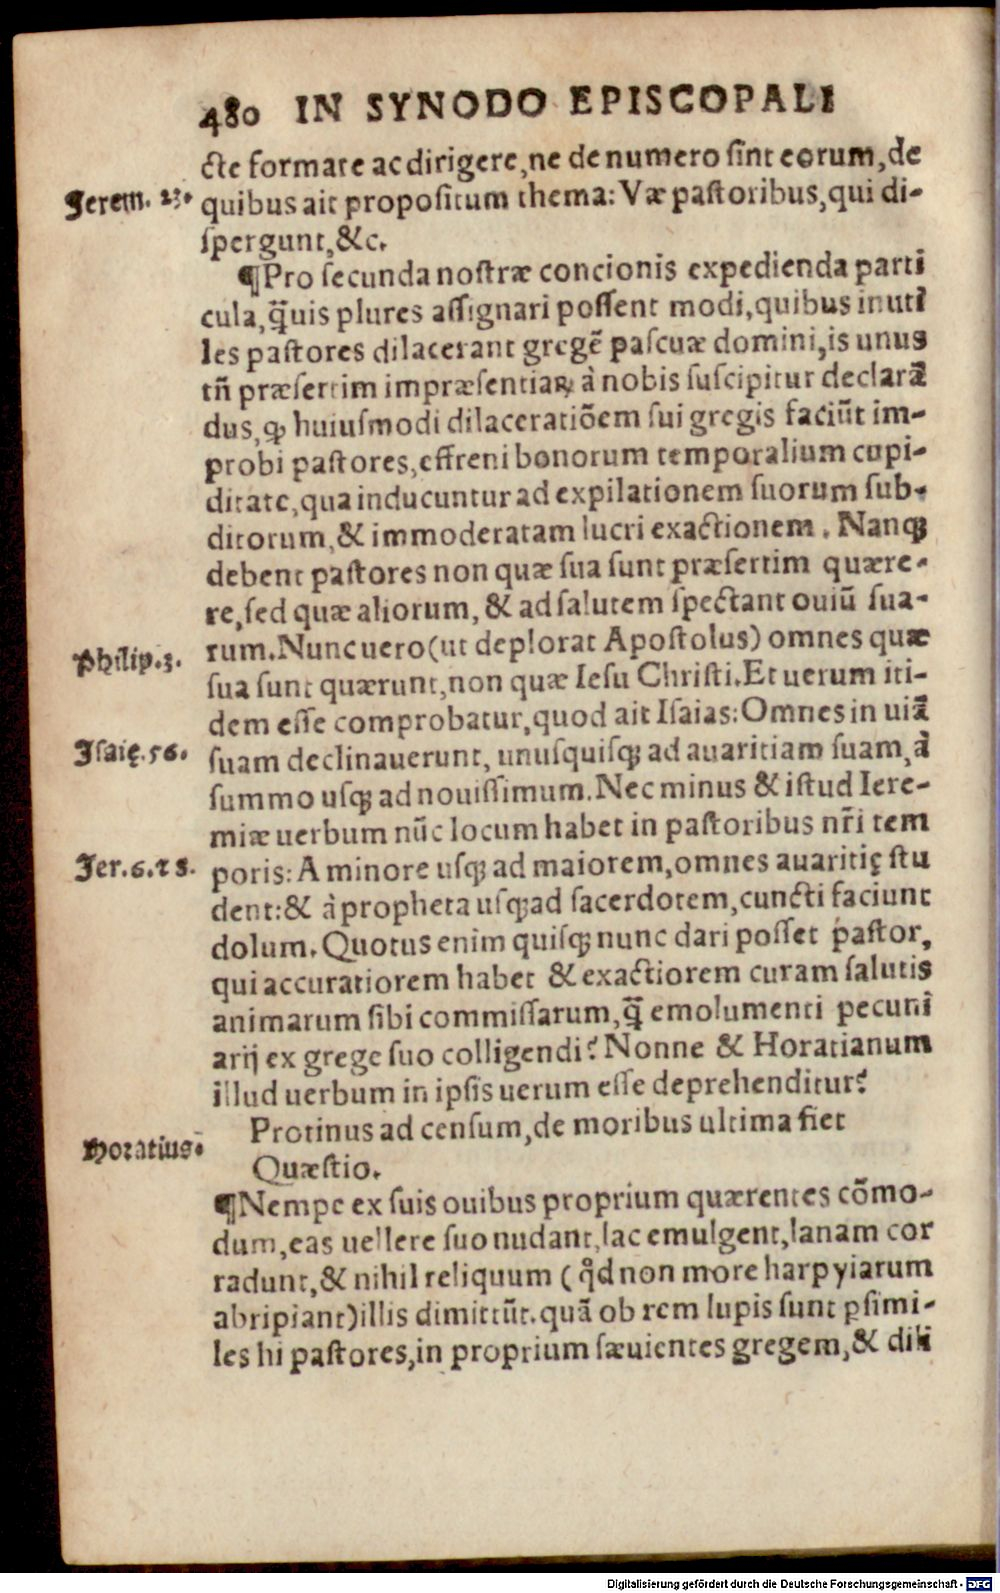 480 IN SYNODO EPISCOPALI
cte formare ac dirigere, ne de numero sint eorum, de
Jerem. 23.
quibus ait propositum thema: Væ pastoribus, qui di-
spergunt, &c.
¶Pro secunda nostræ concionis expedienda parti
cula, q̃uis plures assignari possent modi, quibus inuti
les pastores dilacerant gregẽ pascuæ domini, is unus
tñ præsertim impræsentiaꝝ à nobis suscipitur declarã
dus, ꝙ huiusmodi dilaceratiõem sui gregis faciũt im-
probi pastores, effreni bonorum temporalium cupi-
ditate, qua inducuntur ad expilationem suorum sub-
ditorum, & immoderatam lucri exactionem. Nanqꝫ
debent pastores non quæ sua sunt præsertim quære-
re, sed quæ aliorum, & ad salutem spectant ouiũ sua-
Philip. 3.
rum. Nunc uero (ut deplorat Apostolus) omnes quæ
sua sunt quærunt, non quæ Iesu Christi. Et uerum iti-
dem esse comprobatur, quod ait Isaias: Omnes in uiã
Isaię. 56.
suam declinauerunt, unusquisqꝫ ad auaritiam suam, à
summo usqꝫ ad nouissimum. Nec minus & istud Iere-
miæ uerbum nũc locum habet in pastoribus nr̃i tem
Jer. 6. ⁊ 8.
poris: A minore usqꝫ ad maiorem, omnes auaritię stu
dent: & à propheta usqꝫ ad sacerdotem, cuncti faciunt
dolum. Quotus enim quisqꝫ nunc dari posset pastor,
qui accuratiorem habet & exactiorem curam salutis
animarum sibi commissarum, q̃ emolumenti pecuni
arij ex grege suo colligendi? Nonne & Horatianum
illud uerbum in ipsis uerum esse deprehenditur?
Horatius.
Protinus ad censum, de moribus ultima fiet
Quæstio.
¶Nempe ex suis ouibus proprium quærentes cõmo-
dum, eas uellere suo nudant, lac emulgent, lanam cor
radunt, & nihil reliquum (qd̃ non more harpyiarum
abripiant) illis dimittũt. quã ob rem lupis sunt ꝑsimi-
les hi pastores, in proprium sæuientes gregem, & dili
Digitalisierung gefördert durch die Deutsche Forschungsgemeinschaft - DFG